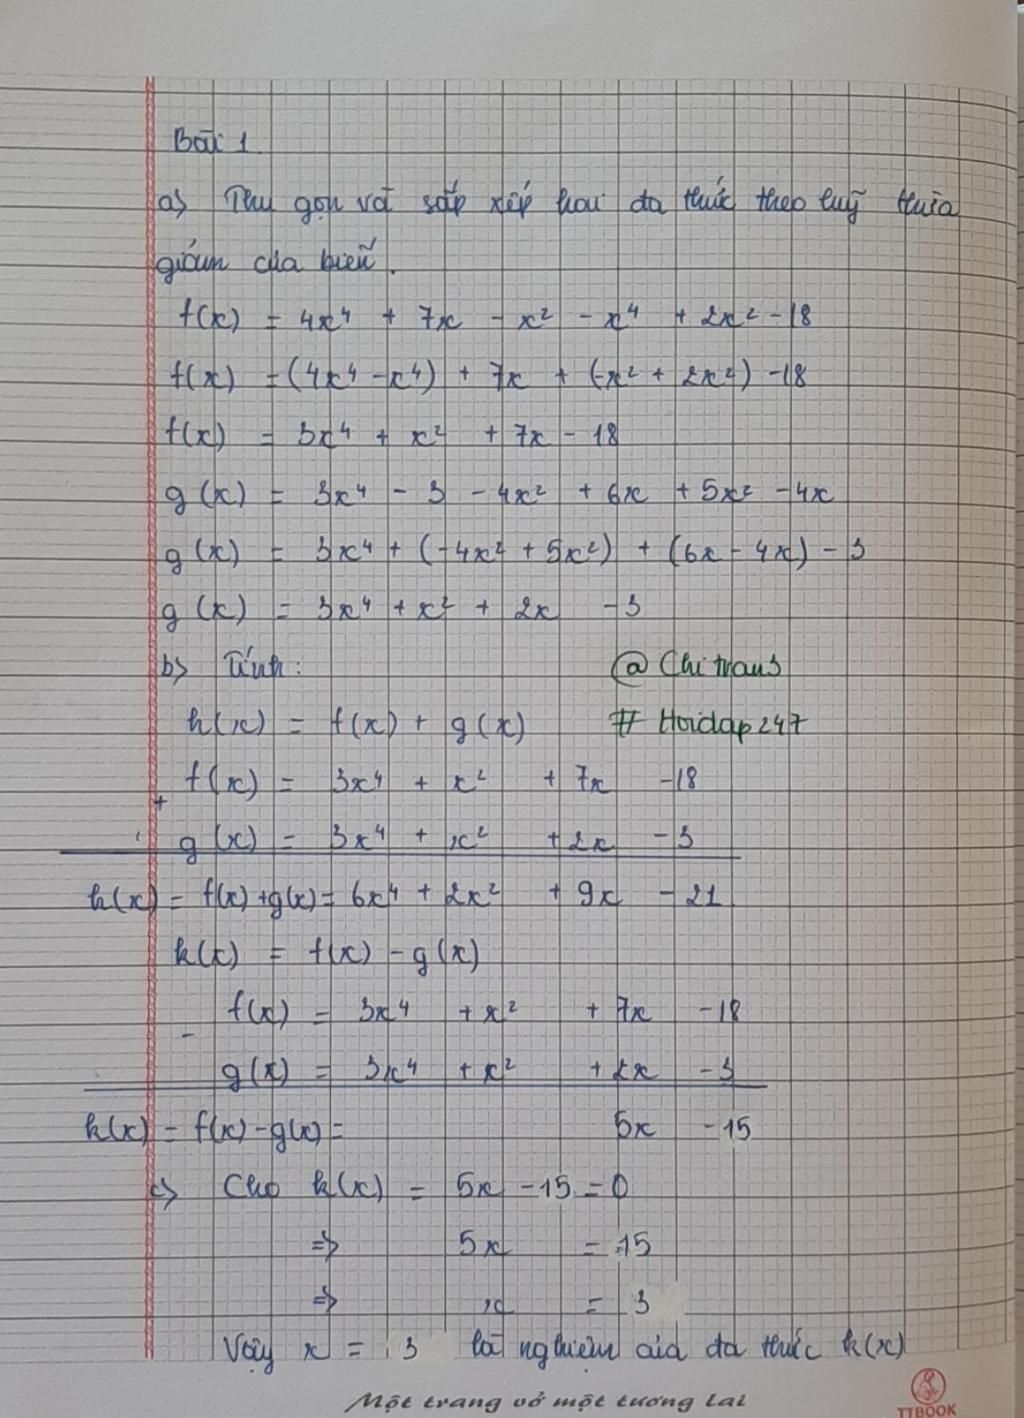 Bài 1
a) Thu gọn và sắp xếp hai đa thức theo luỹ thừa
giảm của biến.
f(x) = 4x⁴ + 7x - x² - x⁴ + 2x² - 18
f(x) = (4x⁴ - x⁴) + 7x + (-x² + 2x²) - 18
f(x) = 3x⁴ + x² + 7x - 18
g(x) = 3x⁴ - 3 - 4x² + 6x + 5x² - 4x
g(x) = 3x⁴ + (-4x² + 5x²) + (6x - 4x) - 3
g(x) = 3x⁴ + x² + 2x - 3
b) Tính: @ Chitrans
h(x) = f(x) + g(x) # Hoidap247
f(x) = 3x⁴ + x² + 7x - 18
+
g(x) = 3x⁴ + x² + 2x - 3
h(x) = f(x) + g(x) = 6x⁴ + 2x² + 9x - 21
k(x) = f(x) - g(x)
f(x) = 3x⁴ + x² + 7x - 18
-
g(x) = 3x⁴ + x² + 2x - 3
k(x) = f(x) - g(x) = 5x - 15
c) Cho k(x) = 5x - 15 = 0
⇒ 5x = 15
⇒ x = 3
Vậy x = 3 là nghiệm của đa thức k(x)
Một trang vở một tương lai
TTBOOK